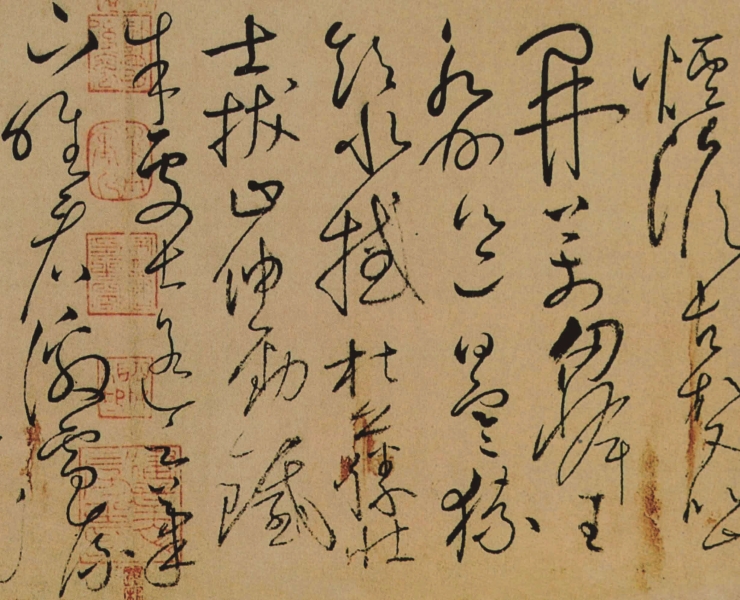 煙澹古松又似山
開萬仞峰王
永州邕曰寒猿
飲水撼枯藤壯
士拔山伸勁鐵
朱處士遙云筆
下唯看激電流